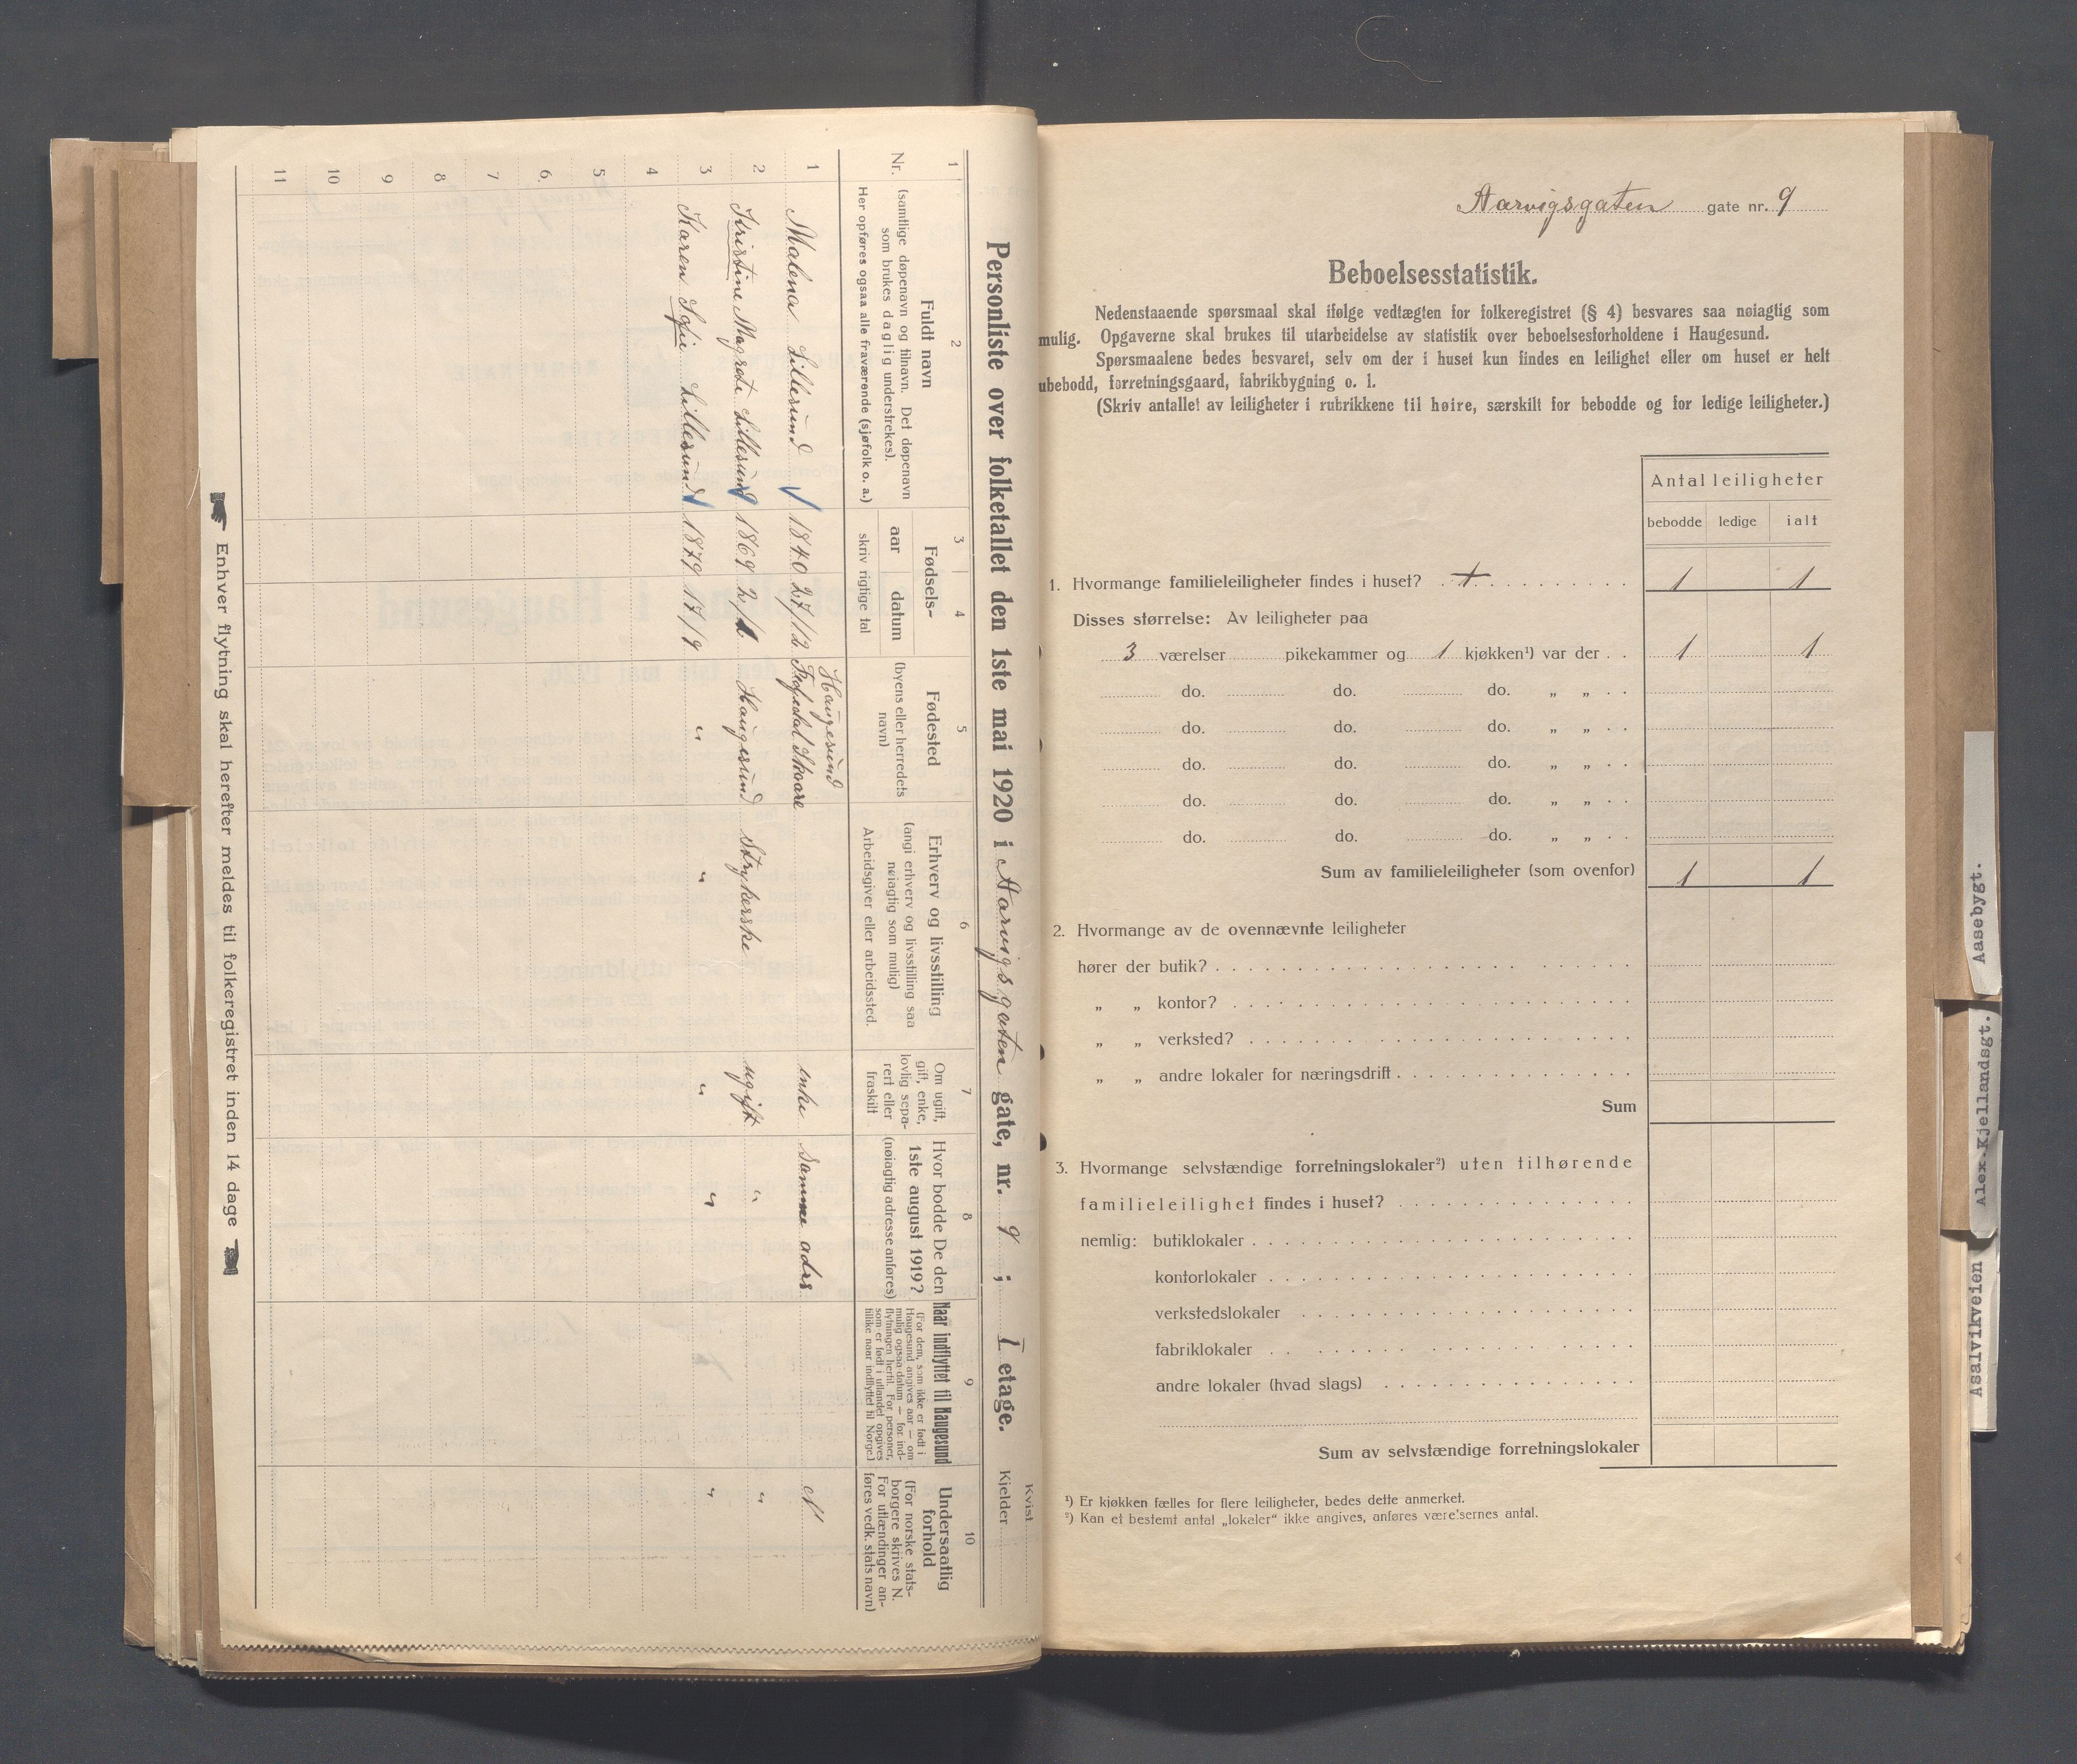 Personliste over folketallet den 1ste mai 1920 i Aarvigsgaten gate, nr. 9 ; I etage. Kvist Kjelder
1 2 3 4 5 6 7 8 9 10
Nr.
Fuldt navn
(samtlige døpenavn og tilnavn. Det døpenavn
som brukes daglig understrekes).
Her opføres ogsaa alle fraværende (sjøfolk o. a.)
Fødsels-
aar datum
skriv rigtige tal
Fødested
(byens eller herredets
navn)
Erhverv og livsstilling
(angi erhverv og livsstilling saa
nøiagtig som mulig)
Arbeidsgiver eller arbeidssted.
Om ugift,
gift, enke,
lovlig sepa-
rert eller
fraskilt
Hvor bodde De den
1ste august 1919?
(nøiagtig adresse anføres)
Naar indflyttet til Haugesund
(For dem, som ikke er født i
Haugesund angives aar — om
mulig ogsaa datum — for ind-
flytningen hertil. For personer,
som er født i utlandet opgives
tillike naar indflyttet til Norge.)
Undersaatlig
forhold
(For norske stats-
borgere skrives N.
For utlændinger an-
føres vedk. stats navn)
Haugesund
1 Malena Lillesund 1840 27/12 Skaare enke Samme adrs N
2 Kristine Magrete Lillesund 1869 2/1 Haugesund Strykerske ugift " "
3 Karen Sofie Lillesund 1879 17/9 " " " " "
4
5
6.
7
8
9
10
11
Enhver flytning skal herefter meldes til folkeregistret inden 14 dage
Aarvigsgaten gate nr. 9
Beboelsesstatistik.
Nedenstaaende spørsmaal skal ifølge vedtægten for folkeregistret (§ 4) besvares saa nøiagtig som
mulig. Opgaverne skal brukes til utarbeidelse av statistik over beboelsesforholdene i Haugesund.
Spørsmaalene bedes besvaret, selv om der i huset kun findes en leilighet eller om huset er helt
ubebodd, forretningsgaard, fabrikbygning o. l.
(Skriv antallet av leiligheter i rubrikkene til høire, særskilt for bebodde og for ledige leiligheter.)
Antal leiligheter
bebodde ledige ialt
1. Hvormange familieleiligheter findes i huset? 1 1
Disses størrelse: Av leiligheter paa
3 værelser pikekammer og 1 kjøkken¹) var der . . 1 1
do. do. do. „ „ . .
do. do. do. „ „ . .
do. do. do. „ „ . .
do. do. do. „ „ . .
do. do. do. „ „ . .
Sum av familieleiligheter (som ovenfor) 1 1
2. Hvormange av de ovennævnte leiligheter
hører der butik?
„ „ kontor?
„ „ verksted?
„ „ andre lokaler for næringsdrift
Sum
3. Hvormange selvstændige forretningslokaler²) uten tilhørende
familieleilighet findes i huset?
nemlig: butiklokaler
kontorlokaler
verkstedslokaler
fabriklokaler
andre lokaler (hvad slags)
Sum av selvstændige forretningslokaler
¹) Er kjøkken fælles for flere leiligheter, bedes dette anmerket.
²) Kan et bestemt antal „lokaler“ ikke angives, anføres værelsernes antal.
Aasebygt.
Alex.Kjellandsgt.
Asalvikveien